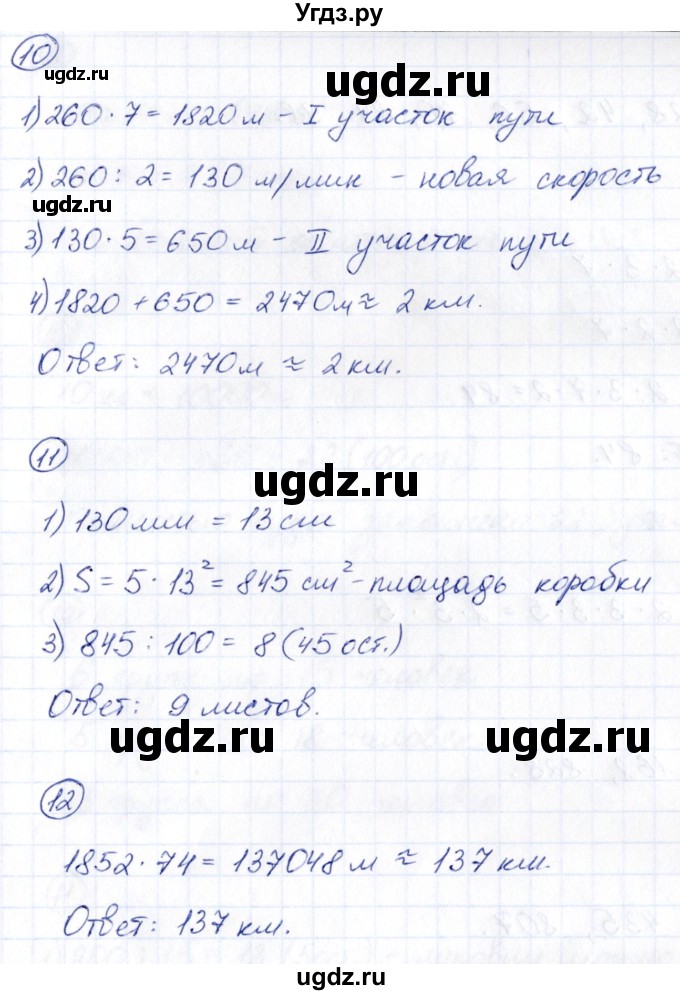 Угдз.ру
10
ugdz.ru
ugdz.ru
1) 260 · 7 = 1820 м – I участок пути
2) 260 : 2 = 130 м/мин – новая скорость
ugdz.ru
3) 130 · 5 = 650 м – II участок пути
4) 1820 + 650 = 2470 м ≈ 2 км.
Ответ: 2470 м ≈ 2 км.
11
ugdz.ru
1) 130 мм = 13 cm
2) S = 5 · 13² = 845 cm² – площадь коробки
3) 845 : 100 = 8 (45 ост.)
Ответ: 9 листов.
ugdz.ru
ugdz.ru
12
1852 · 74 = 137048 м ≈ 137 км.
Ответ: 137 км.
ugdz.ru